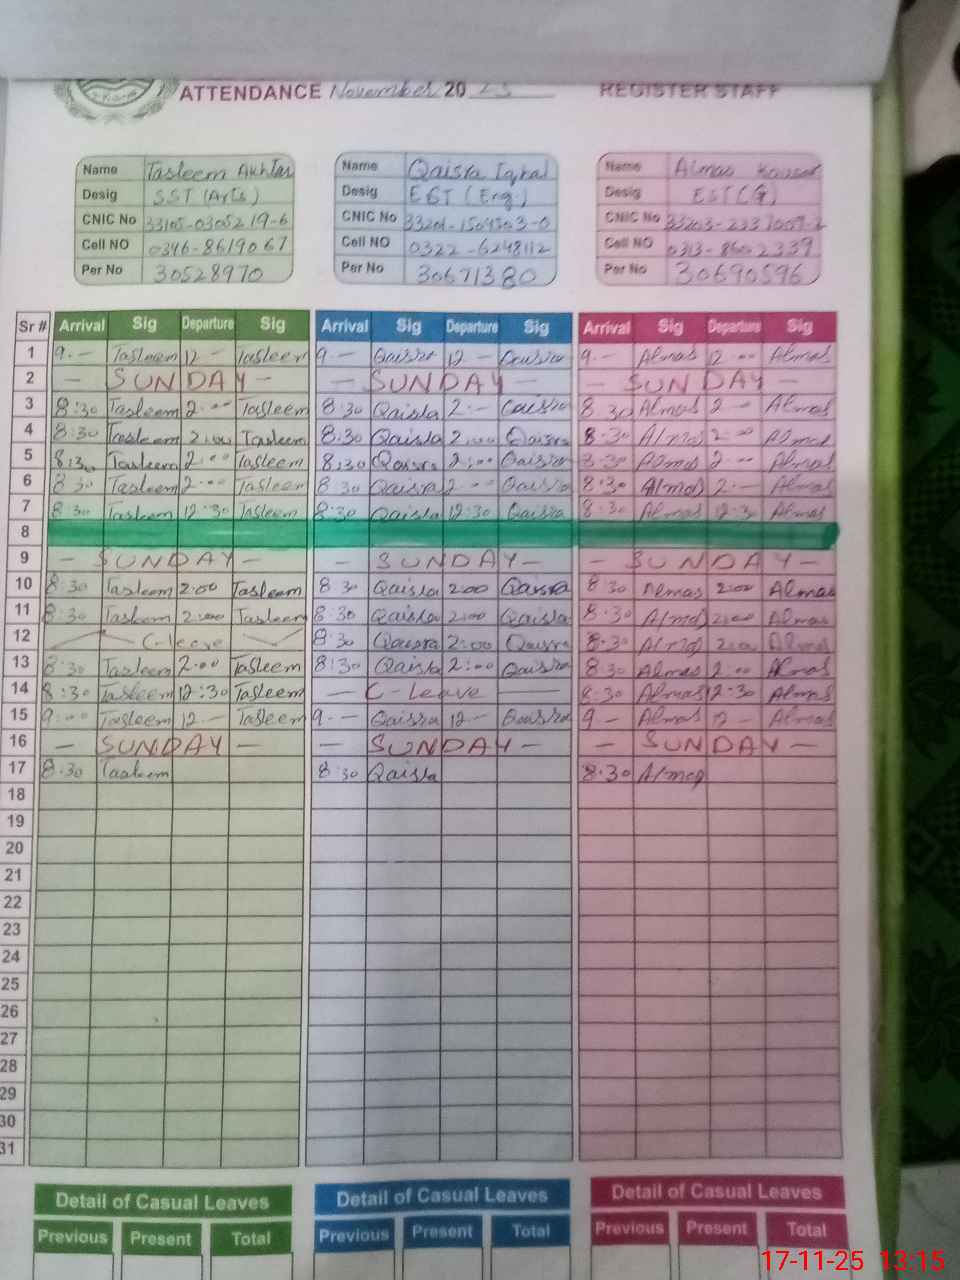 ATTENDANCE November 20 25 REGISTER STAFF
Name Tasleem Akhtar Name Qaisra Iqbal Name Almas Kousar
Desig SST (Arts) Desig EST (Eng.) Desig EST(G)
CNIC No CNIC No CNIC No
Cell NO 0346-8619067 Cell NO 0322-6248112 Cell NO 0313-8602339
Per No 30528970 Per No 30671380 Per No 30690596
Sr # Arrival Sig Departure Sig Arrival Sig Departure Sig Arrival Sig Departure Sig
1 9.- Tasleem 12 - Tasleem 9 - Qaisra 12 - Qaisra 9.- Almas 12 .-- Almas
2 - SUNDAY - - SUNDAY - - SUNDAY -
3 8:30 Tasleem 2.-- Tasleem 8:30 Qaisra 2.- Qaisra 8 30 Almas 2 - Almas
4 8:30 Tasleem 2:00 Tasleem 8:30 Qaisra 2:00 Qaisra 8:30 Almas 2 -- Almas
5 8:30 Tasleem 2:-- Tasleem 8:30 Qaisra 2:00 Qaisra 8:30 Almas 2 -- Almas
6 8 30 Tasleem 2.-- Tasleem 8 30 Qaisra 2 -- Qaisra 8:30 Almas 2.- Almas
7 8:30 Tasleem 12:30 Tasleem 8:30 Qaisra 12:30 Qaisra 8:30 Almas 12:30 Almas
8
9 - SUNDAY - - SUNDAY - - SUNDAY -
10 8:30 Tasleem 2:00 Tasleem 8 30 Qaisra 2:00 Qaisra 8:30 Almas 2:00 Almas
11 8:30 Tasleem 2:00 Tasleem 8:30 Qaisra 2:00 Qaisra 8:30 Almas 2:00 Almas
12 C-leave 8:30 Qaisra 2:00 Qaisra 8:30 Almas 2:00 Almas
13 8:30 Tasleem 2.00 Tasleem 8:30 Qaisra 2:00 Qaisra 8:30 Almas 2:00 Almas
14 8:30 Tasleem 12:30 Tasleem - C-Leave - 8:30 Almas 12:30 Almas
15 9:00 Tasleem 12.- Tasleem 9.- Qaisra 12 - Qaisra 9 - Almas 12 - Almas
16 - SUNDAY - - SUNDAY - - SUNDAY -
17 8:30 Tasleem 8:30 Qaisra 8:30 Almas
18
19
20
21
22
23
24
25
26
27
28
29
30
31
Detail of Casual Leaves Detail of Casual Leaves Detail of Casual Leaves
Previous Present Total Previous Present Total Previous Present Total
17-11-25 13:15